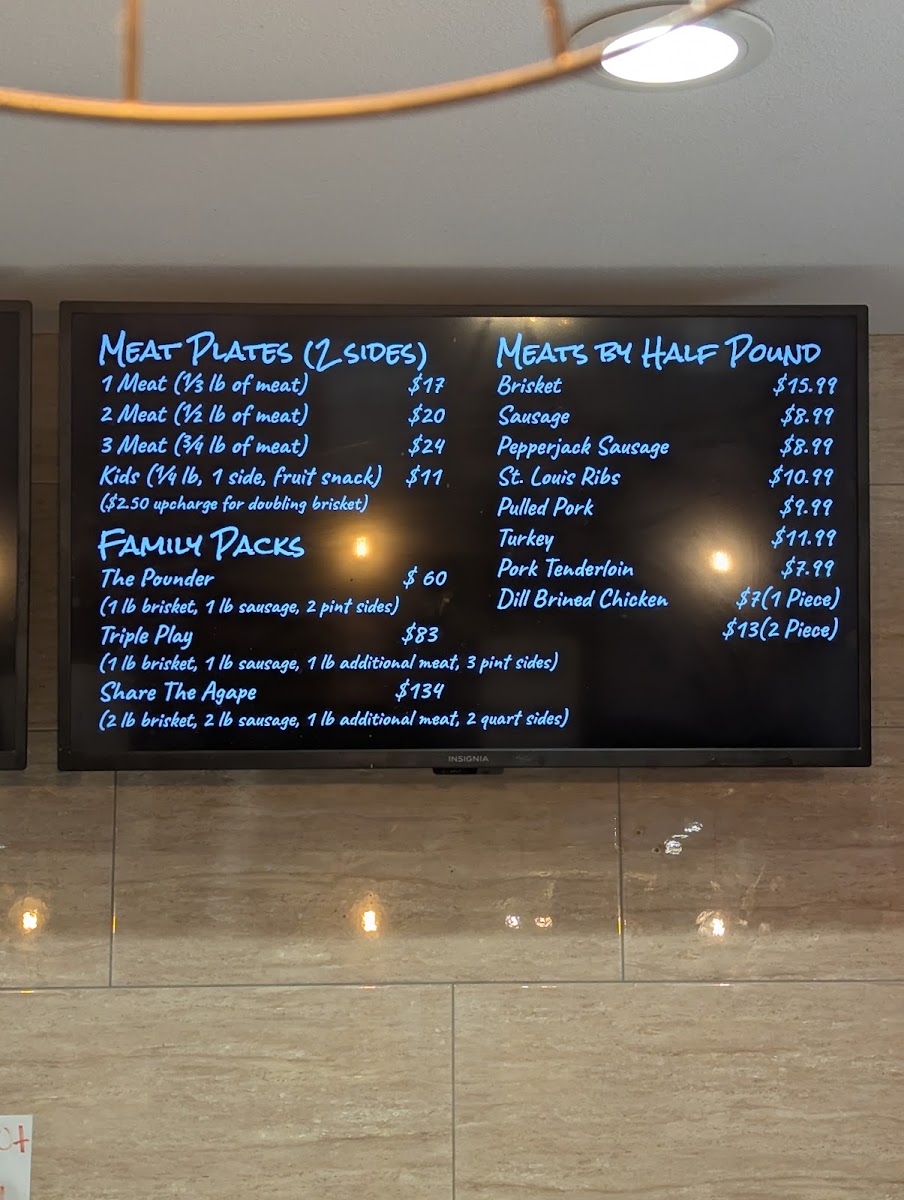 MEAT PLATES (2 SIDES)
1 Meat (⅓ lb of meat) $17
2 Meat (½ lb of meat) $20
3 Meat (¾ lb of meat) $24
Kids (¼ lb, 1 side, fruit snack) $11
($2.50 upcharge for doubling brisket)
FAMILY PACKS
The Pounder $ 60
(1 lb brisket, 1 lb sausage, 2 pint sides)
Triple Play $83
(1 lb brisket, 1 lb sausage, 1 lb additional meat, 3 pint sides)
Share The Agape $134
(2 lb brisket, 2 lb sausage, 1 lb additional meat, 2 quart sides)
MEATS BY HALF POUND
Brisket $15.99
Sausage $8.99
Pepperjack Sausage $8.99
St. Louis Ribs $10.99
Pulled Pork $9.99
Turkey $11.99
Pork Tenderloin $7.99
Dill Brined Chicken $7(1 Piece)
$13(2 Piece)
INSIGNIA